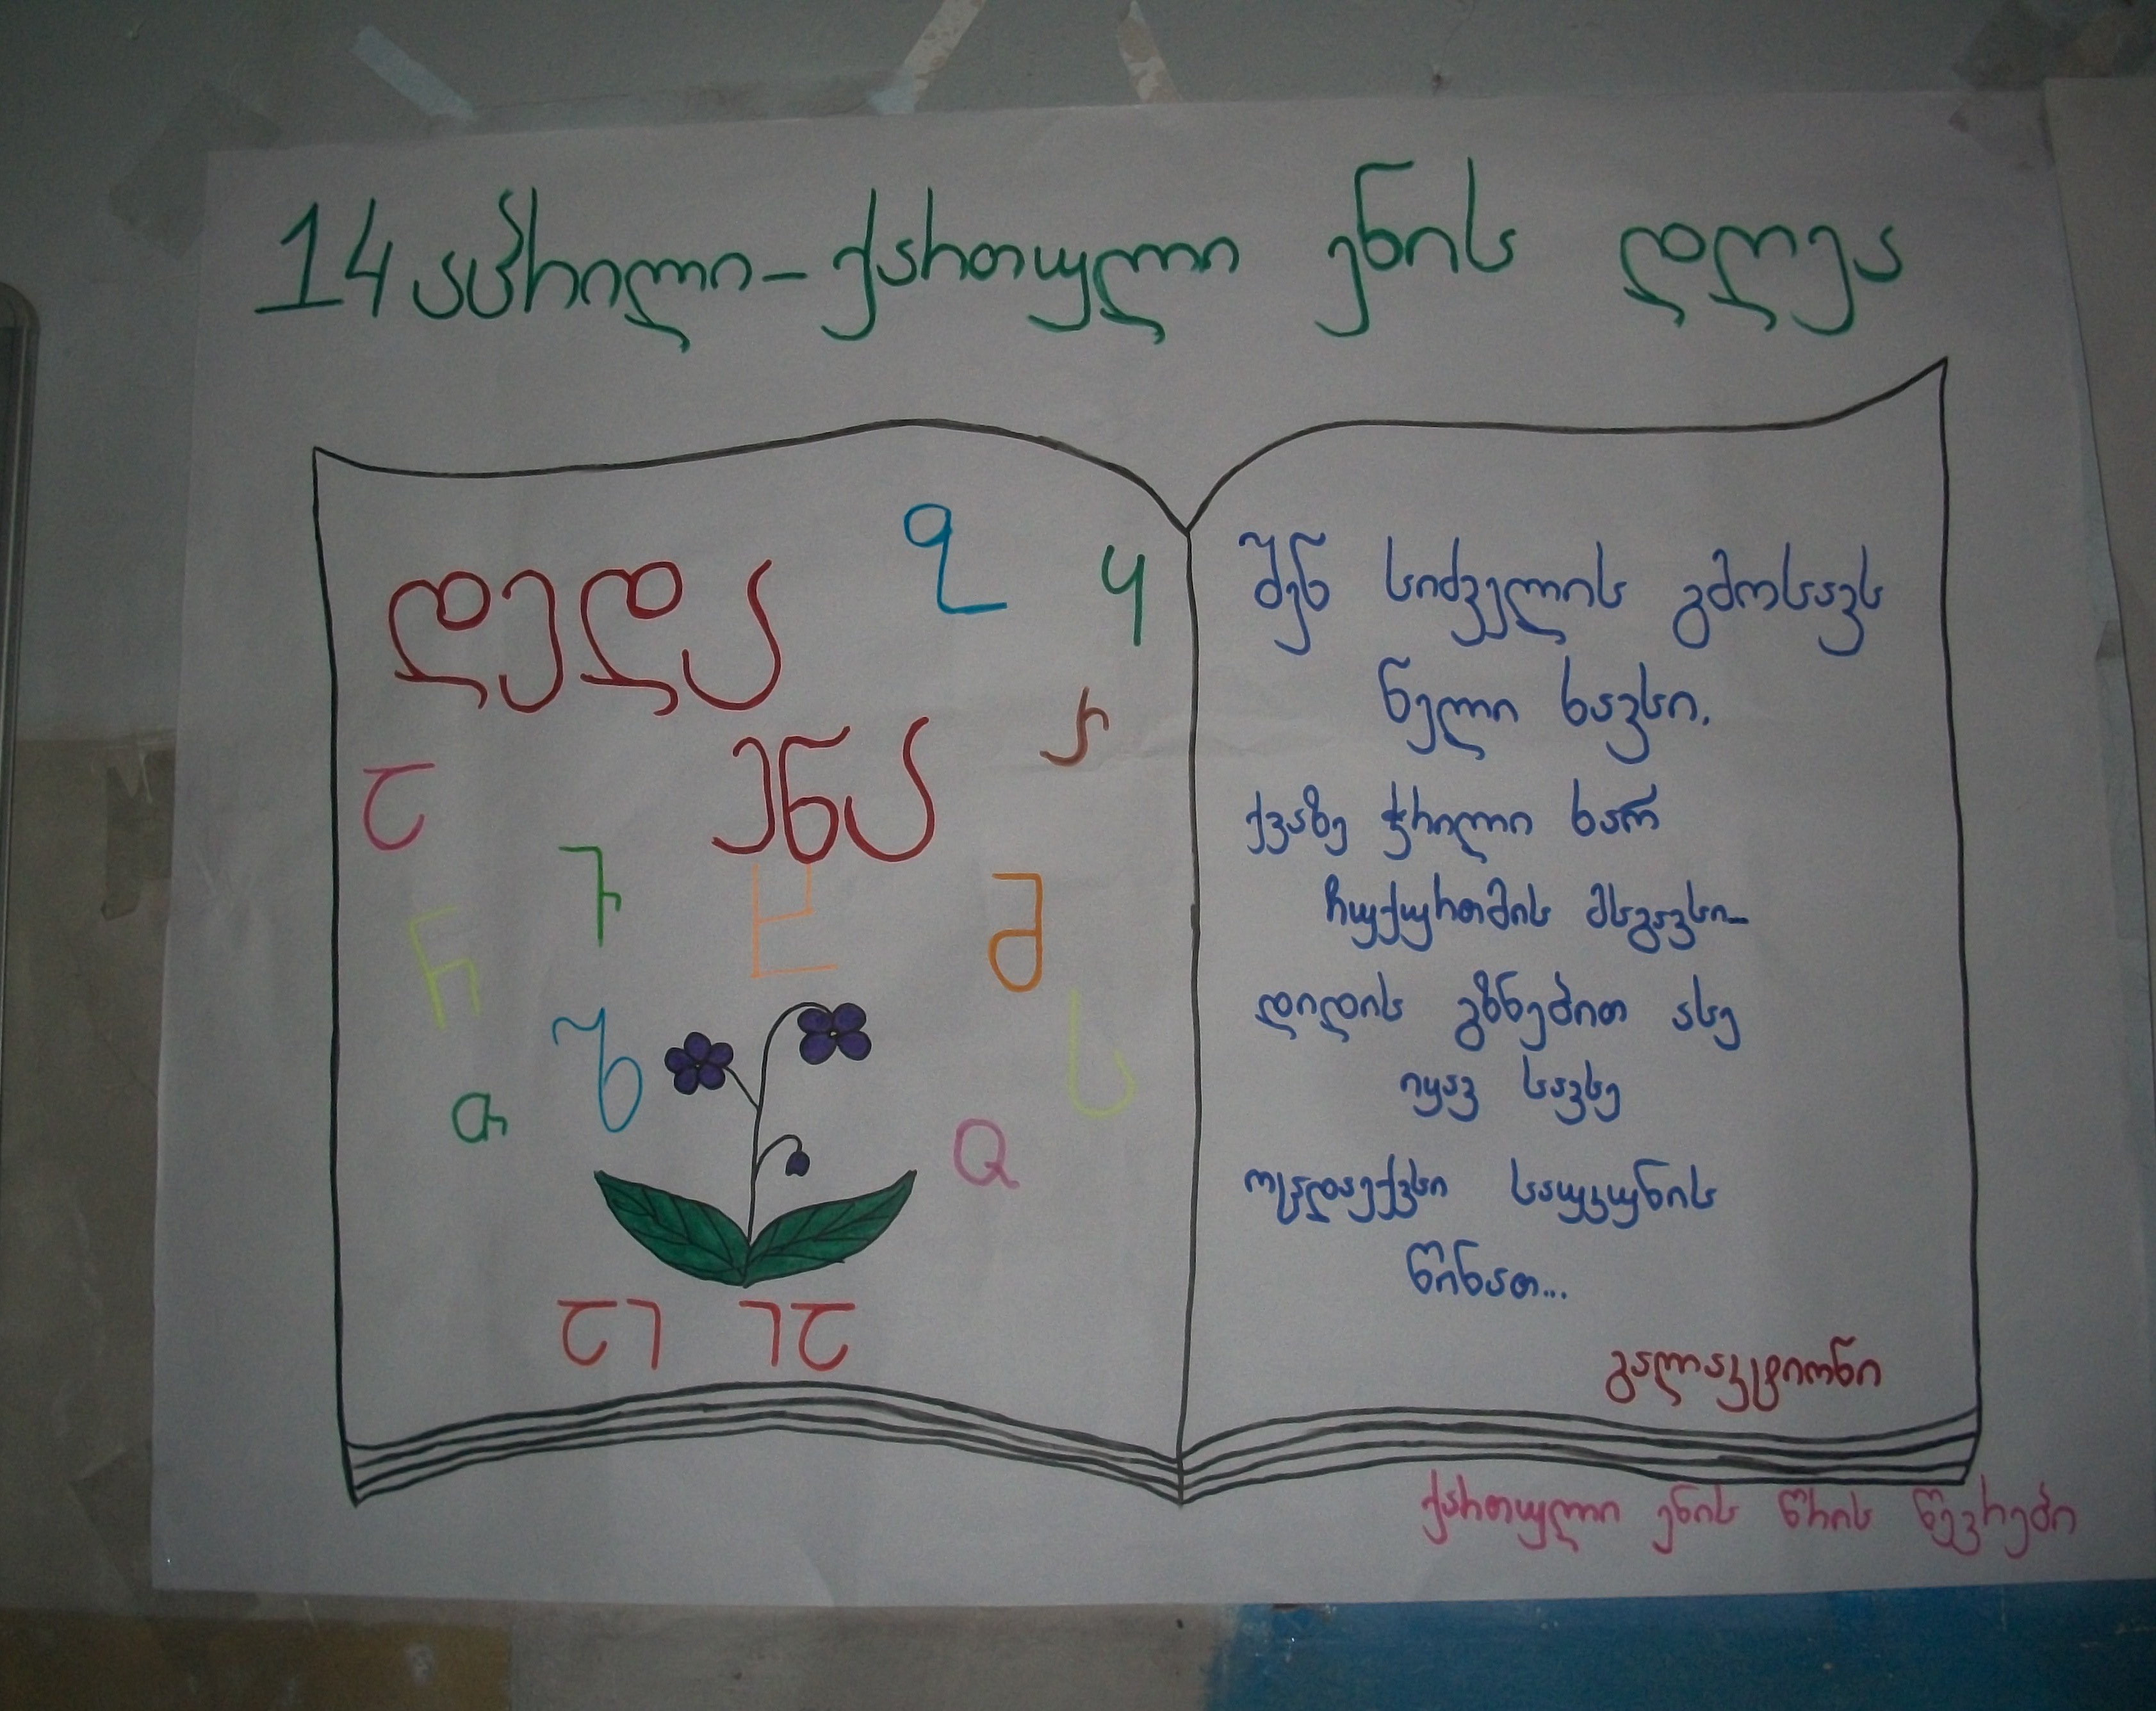 14 აპრილი - ქართული ენის დღეა
დედა
ენა
შენ სიძველის გმოსავს
ნელი ხავსი.
ქვაზე ჭრილი ხარ
ჩუქურთმის მსგავსი-
დიდის გზნებით ასე
იყავ სავსე
ოცდაექვსი საუკუნის
წინათ...
გალაკტიონი
ქართული ენის წრის წევრები